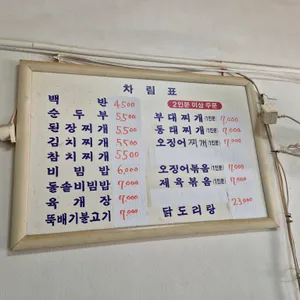 차림표
백반 4500
순두부 5500
된장찌개 5500
김치찌개 5500
참치찌개 5500
비빔밥 6,000
돌솥비빔밥 7,000
육개장 7,000
뚝배기불고기 7,000
2인분 이상 주문
부대찌개(1인분) 7,000
동태찌개(1인분) 7,000
오징어찌개(1인분) 7,000
오징어볶음(1인분) 7,000
제육볶음(1인분) 7,000
닭도리탕 23,000